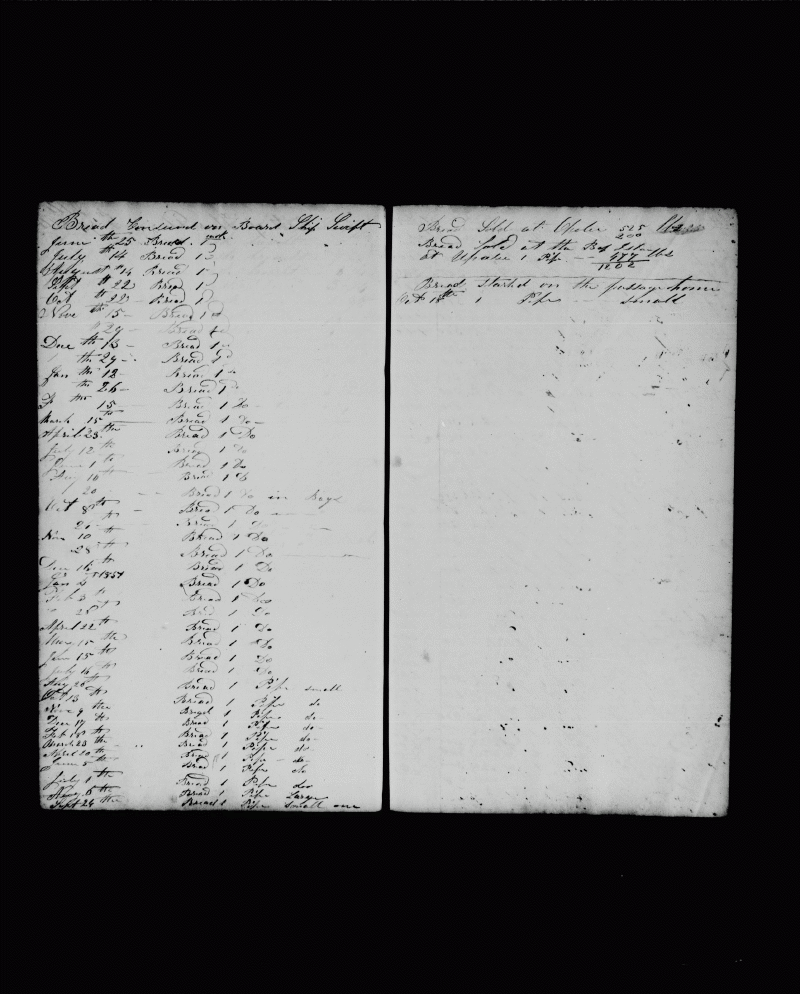 Bread Consumed on Board Ship Swift
June th 25 Bread 1 cask
July th 14 Bread 1
August th 14 Bread 1
Sept th 22 Bread 1
Oct th 22 Bread 1
Nove th 15 - Bread 1 do
th 29 - Bread 1
Dec th 13 - Bread 1 do
th 29 - Bread 1 do
Jan th 12 - Bread 1 do
th 26 - Bread 1 do
15 - Bread 1 Do -
March 15 th Bread 1 Do -
April 23 th Bread 1 Do
July 12 th Bread 1 Do
June 1 th Bread 1 Do
Aug 10 th Bread 1 D
20 - - Bread 1 Do in bags
Oct 8 th - Bread 1 Do
20 th Bread 1 Do
Nov 10 th Bread 1 Do
28 th Bread 1 Do
Dec 16 th Bread 1 Do
Jan 2 1851 Bread 1 Do
Feb 3 th Bread 1 Do
25 th Bread 1 Do
April 22 th Bread 1 Do
15 th Bread 1 Do
June 15 th Bread 1 Do
July 16 th Bread 1 Do
Aug 26 th Bread 1 Pipe small
Oct 13 th Bread 1 Pipe do
Nove 9 the Bread 1 Pipe do
Dec 17 th Bread 1 Pipe do
Feb 18 th Bread 1 Pipe do
March 23 the Bread 1 Pipe do
April 20 th Bread 1 Pipe - do
June 5 th Bread 1 Pipe do
July 1 the Bread 1 Pipe do
Nov 6 the Bread 1 Pipe Large
Sept 24 the Bread 1 Pipe small one
Bread Sold at 525 lbs
200
Bread sold at the Bay
at 1 Pipe - - 477 lbs
1202
Bread Started on the passage home
Oct 18 th 1 Pipe - small